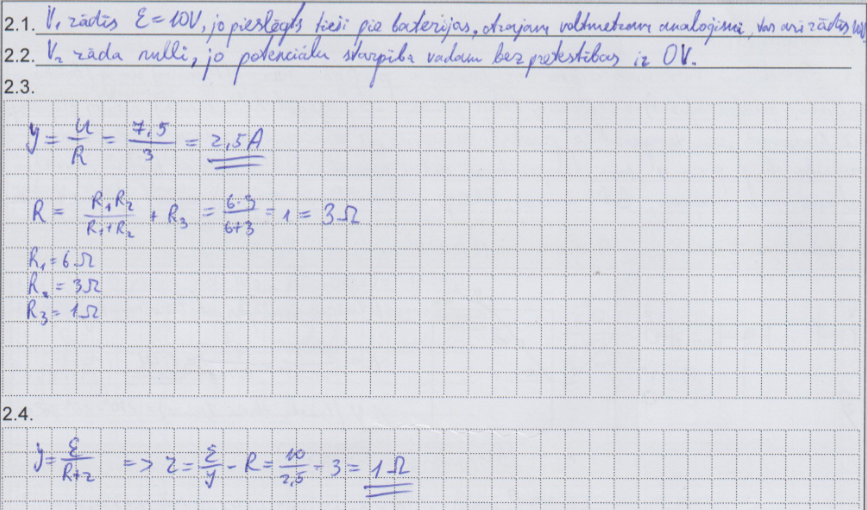 2.1. V₁ rādīs Ɛ = 10V, jo pieslēgts tieši pie baterijas, otrajam voltmetram analoģiski, tas arī rādīs 10V
2.2. V₂ rāda nulli, jo potenciālu starpība vadam bez pretestības ir 0V.
2.3.
y = U/R = 7,5/3 = 2,5A
R = R₁R₂/(R₁+R₂) + R₃ = 6·3/(6+3) + 1 = 3Ω
R₁ = 6Ω
R₂ = 3Ω
R₃ = 1Ω
2.4.
y = Ɛ/(R+r) => r = Ɛ/y - R = 10/2,5 - 3 = 1Ω